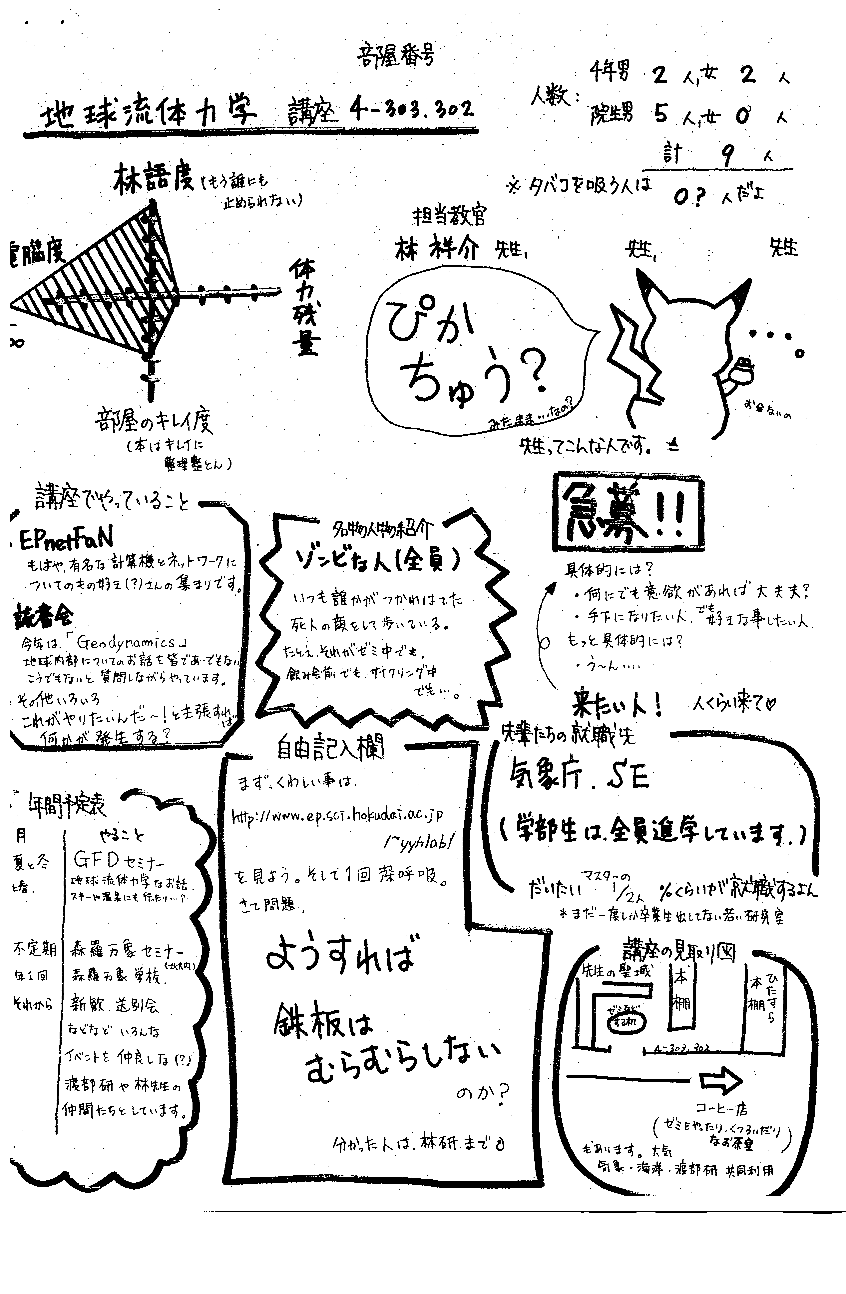 部屋番号
地球流体力学 講座 4-303.302
人数: 4年男 2 人,女 2 人
院生男 5 人,女 0 人
計 9 人
※タバコを吸う人は 0? 人だよ
林語度(もう誰にも
止められない)
電脳度
∞
体力残量
部屋のキレイ度
(本はキレイに
整理整とん)
担当教官
林 祥介 先生, 先生, 先生
ぴか
ちゅう?
みたまま…なの?
先生ってこんな人です。
講座でやっていること
EPnetFaN
もはや,有名な計算機とネットワークに
ついてのもの好き(?)さんの集まりです。
読書会
今年は,「Geodynamics」
地球内部についてのお話を皆であーでもない
こうでもないと質問しながらやっています。
その他いろいろ
これがやりたいんだ〜!と主張すれば
何かが発生する?
名物の人物の紹介
ゾンビな人(全員)
いつも誰かがつかれはてた
死人の顔をして歩いている。
たとえ,それがゼミ中でも,
飲み会前でも,サイクリング中
でも…。
急募!!
具体的には?
・何にでも意欲があれば大丈夫?
・手下になりたい人,でも好きな事したい人
もっと具体的には?
・う〜ん….
来たい人! 人くらい来て♡
先輩たちの就職先
気象庁.SE
(学部生は,全員進学しています.)
だいたい マスターの 1/2人 %くらいが就職するよん
*まだ一度しか卒業生出してない若い研究室
自由記入欄
まず,くわしい事は,
http://www.ep.sci.hokudai.ac.jp
/~yyhlab/
を見よう。そして1回深呼吸。
さて問題,
ようすれば
鉄板は
むらむらしない
のか?
分かった人は,林研まで
年間予定表
月 やること
夏と冬 GFDセミナー
と春, 地球流体力学なお話,
スキーや温泉にも行ったり…?
不定期 森羅万象セミナー
年1回 森羅万象学校
それから 新歓,送別会
などなど いろんな
イベントを仲良しな(?)
渡部研や林先生の
仲間たちとしています。
講座の見取り図
先生の聖域
本棚
ひたすら本棚
4-303,302
コーヒー店
(ゼミをやったり,くつろいだり
なお茶室)
もあります。大気
気象・海洋・渡部研 共同利用